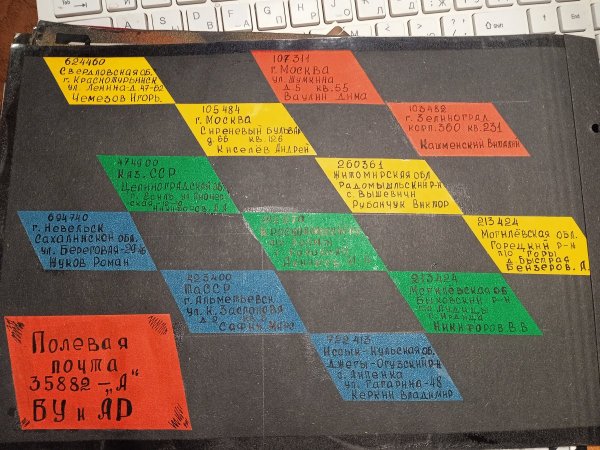 624460
Свердловская об.
г. Краснотурьинск
ул. Ленина-д. 47-62
Чемезов Игорь.
107311
г. Москва
ул. Шумкина
д 5 кв. 55
Ваулин Дима
105484
г. Москва
Сиреневый бульвар
д. 66 кв. 126
Киселев Андрей
103482
г. Зелиноград
корп. 360 кв. 231
Кашменский Виталий
474900
Каз. ССР
Целиноградская
260361
Житомирская обл
Радомышльский р-н
с. Вышевичи
Рубанчук Виктор
694740
г. Невельск
Сахалинской обл.
ул. Береговая-29-6
Жуков Роман
213424
Могилёвская обл.
Горецкий р-н
п/о Горы
д. Быстрая
Бензеров. А.
423400
ТАССР
г. Альметьевск
ул. К.
213424
Могилёвская об
Быховский р-н
Никифоров В.В.
722413
Иссык-Кульская об.
Джеты-Огузский р-н
с. Липенка
ул. Гагарина-48
Керкин Владимир
Полевая
почта
35882-„А“
БУ и АР